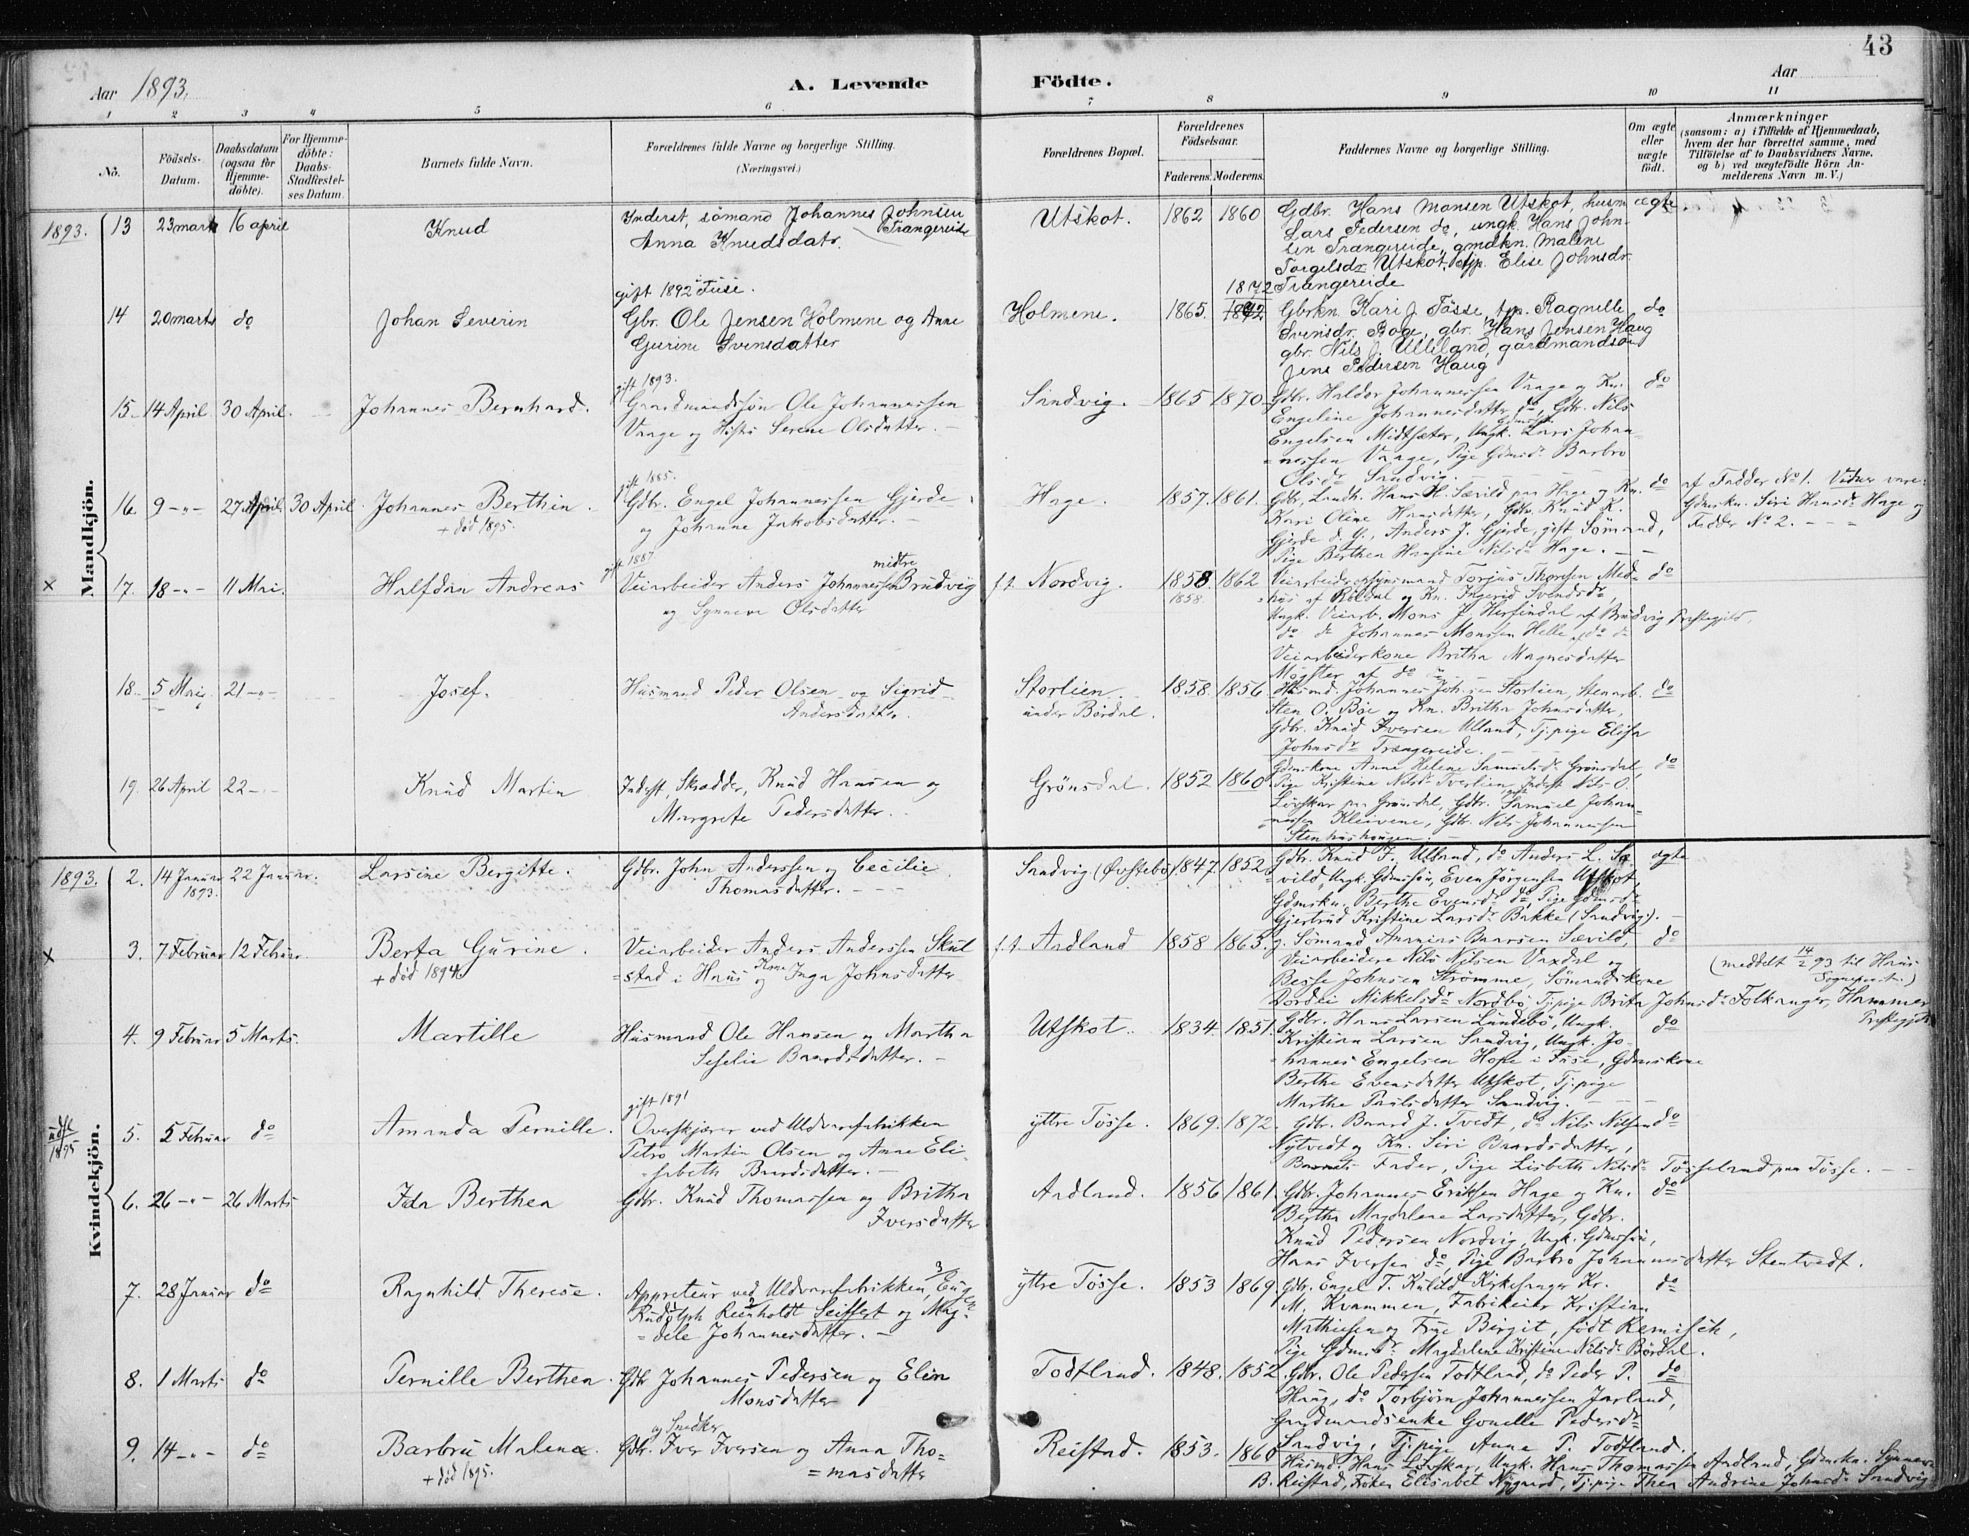 43
Aar 1893.
A. Levende Födte.
Aar
1 2 3 4 5 6 7 8 9 10 11
No.
Födsels-Datum.
Daabsdatum (ogsaa for Hjemme-döbte).
For Hjemme-döbte: Daabs-Stadfæstel-ses Datum.
Barnets fulde Navn.
Forældrenes fulde Navne og borgerlige Stilling.
(Næringsvei.)
Forældrenes Bopæl.
Forældrenes Födselsaar.
Faderens. Moderens.
Faddernes Navne og borgerlige Stilling.
Om ægte eller uægte födt.
Anmærkninger
(saasom: a) i Tilfælde af Hjemmedaab,
hvem der har forrettet samme, med
Tilföielse af to Daabsvidners Navne,
og b) ved uægtefödte Börn An-
melderens Navn m. V.)
Mandkjön.
1893. 13 23 marts 16 april Knud
Inderst, sömand Johannes Johnsen Trangereide
Anna Knudsdatr.
Utskot. 1862 1860
Gdbr. Hans Monsen Utskot, husm ægte
Lars Pedersen do, ungk. Hans John-
sen Trangereide, gmdkn. Malene
Torgelsdr Utskot, tjp. Elise Johnsdr.
Trangereide
14 20 marts do Johan Severin
gift 1892 i Fuse.
Gbr. Ole Jensen Holmene og Anne
Gurine Svensdatter
Holmene. 1865. 1872
Gbrkn. Kari J. Tösse, tjp. Ragnille do
Svensdr. Boge, gbr. Hans Jensen Haug
gbr. Nils J. Ulleland, gardmandsön
Jens Pedersen Haug
15 14 April 30 April. Johannes Bernhard.
gift 1893.
Gaardmandssön Ole Johannessen
Vaage og Hustr Serine Olsdatter.
Sandvig. 1865 1870
Gdbr. Haldor Johannessen Vaage og Kn. do
Engeline Johannesdatter do, Gdbr. Nils
Engelsen Midtsæter, Ungk. Gdmss. Lars Johan-
nessen Vaage, Pige Gdmsd. Barbro
Olsdr Sandvig.
16. 9 -"- 27 April. 30 April. Johannes Berthin.
+ död 1895.
gift 1885.
Gdbr. Engel Johannessen Gjerde
og Johanne Jakobsdatter.
Hage. 1857. 1861.
Gdbr, Landh. Hans H. Sævild paa Hage og Kn. do
Kari Oline Hansdatter, Gdbr. Knud K.
Gjerde d. y., Anders J. Gjerde, gift Sömand,
Pige Berthea Hansine Nilsdr Hage.
af Fadder No 1. Vidner vare:
Gdmskn. Siri Hansdr Hage og
Fadder No 2.
x 17. 18 -"- 11 Mai. Halfdan Andreas
gift 1887
Veiarbeider Anders Johannessen midtre Brudvig
og Synneve Olsdatter
f. t. Nordvig. 1858 1862
1858.
Veiarbeidsopsynsmand Torjus Thorsen Med- do
hus af Röldal og Kn. Ingerid Svendsdr,
Ungk. Veiarb. Mons J. Herfindal af Brudvig Prestegjeld,
do do Johannes Monsen Helle af do do
Veiarbeiderkone Britha Magnesdatter
Mögster af do
18 5 Mai 21 -"- Josef.
Husmand Peder Olsen og Sigrid
Andersdatter.
Storlien
under Bördal. 1858. 1856
Husmd. Johannes Joh.sen Storlien, Stenarb. do
Sten O. Böe og Kn. Britha Johnsdatter,
Gdbr. Knud Iversen Ulland, Tj.pige Elisa
Johnsdr Trængereide.
19. 26 April 22 -"- Knud Martin
Inderst, Skrædder, Knud Hansen og
Margrete Pedersdatter.
Grönsdal. 1852 1860
Gdmskone Anne Helene Samuelsdr Grönsdal, do
Pige Kristine Nilsdr Tverlien, Inderst Nils O.
Lövskar paa Grönsdal, Gdbr. Samuel Johan-
nessen Kleivene, Gdbr. Nils Johannessen
Stenhushaugen.
Kvindekjön.
1893. 2. 14 Januar 1893. 22 Januar. Larsine Bergitte.
Gdbr. John Anderssen og Cecilie
Thomasdatter.
Sandvig (Övstebö) 1847. 1852
Gdbr. Knud F. Ulland, do Anders L. Sæ- ægte
vild, Ungk. Gdmssön, Even Jörgensen Utskot,
Gdmskn. Berthe Evensdr do, Pige Gdmsdr
Gjertrud Kristine Larsdr Bakke (Sandvig).
x 3. 7 Februar 12 Februar. Berta Gurine.
+ död 1894
Veiarbeider Anders Anderssen Skul-
stad i Haus og Kone Inga Johnsdatter
f. t. Ardland 1858 1865.
g. Sömand Ananias Baarsen Sævild, do
Veiarbeidere Nils Nilsen Vaxdal og
Besse Johnsen Strömme, Sömandskone
Dordei Mikkelsdr Nordbö, Tj.pige Brita Johnsdr Folkanger, Hammer
Prestegjeld
(meddelt 14/2 93 til Haus
Sogneprest.)
4. 9 Februar 5 Marts. Martille
Husmand Ole Hansen og Martha
Seselie Baardsdatter.
Utskot. 1834. 1851.
Gdbr. Hans Larsen Lundebö, Ungk. do
Kristian Larsen Sandvig, Ungk. Jo-
hannes Engelsen Hope i Fuse, Gdmskone
Berthe Evensdatter Utskot, Tj.pige
Marthe Paulsdatter Sandvig.
udfl. 1895 5. 5 Februar do Amanda Pernille.
gift 1891
Overskjærer ved Uldvarefabrikken
Petro Martin Olsen og Anne Eli-
sabeth Baardsdatter.
yttre Tösse. 1869. 1872.
Gdbr. Baard J. Tvedt, do Nils Nilsen do
Nytvedt og Kn. Siri Baardsdatter,
Barnets Fader, Pige Lisbeth Nilsdr Tösseland paa Tösse.
6. 26 -"- 26 Marts Ida Berthea
Gdbr. Knud Thomassen og Britha
Iversdatter
Ardland. 1856 1861.
Gdbr. Johannes Eriksen Hage og Kn. do
Bertha Magdalene Larsdatter, Gdbr.
Knud Pedersen Nordvig, Ungk. Gdmssön,
Hans Iversen do, Pige Barbro Johannesdatter Stentvedt.
7. 28 Januar do Ragnhild Therese.
Appreteur ved Uldvarefabrikken, Eugen
Rudolph Reinholdt Seiffert og Mag-
dele Johannesdatter.
yttre Tösse. 1853 1869
Gdbr. Engel T. Kulild, Kirkesanger Kr. do
M. Kvammen, Fabrikeier Kristian
Mathiesen og Frue Birgit, födt Kemisch,
Pige Gdmsdr Magdalena Kristine Nilsdr Bördal.
8. 1 Marts do Pernille Berthea.
Gdbr Johannes Pedersen og Elen
Monsdatter
Todtland. 1848. 1852
Gdbr. Ole Pedersen Todtland, do Peder P. do
Haug, do Torbjörn Johannessen Jarland,
Gaardmandsenke Gonelle Pedersdr
Sandvig, Tj.pige Anne P. Todtland.
9. 14 -"- do Barbru Malene.
+ död 1895.
Gdbr. og Snedker Iver Iversen og Anna Tho-
masdatter
Reistad. 1853. 1860
Husmd. Hans Lövskar, Ungk. Hans Thomassen Ardland, Gdmskn. Synneve
B. Reistad, Fröken Elisabet Nygaard, Tj.pige Thea Andrine Johnsdr Sandvig